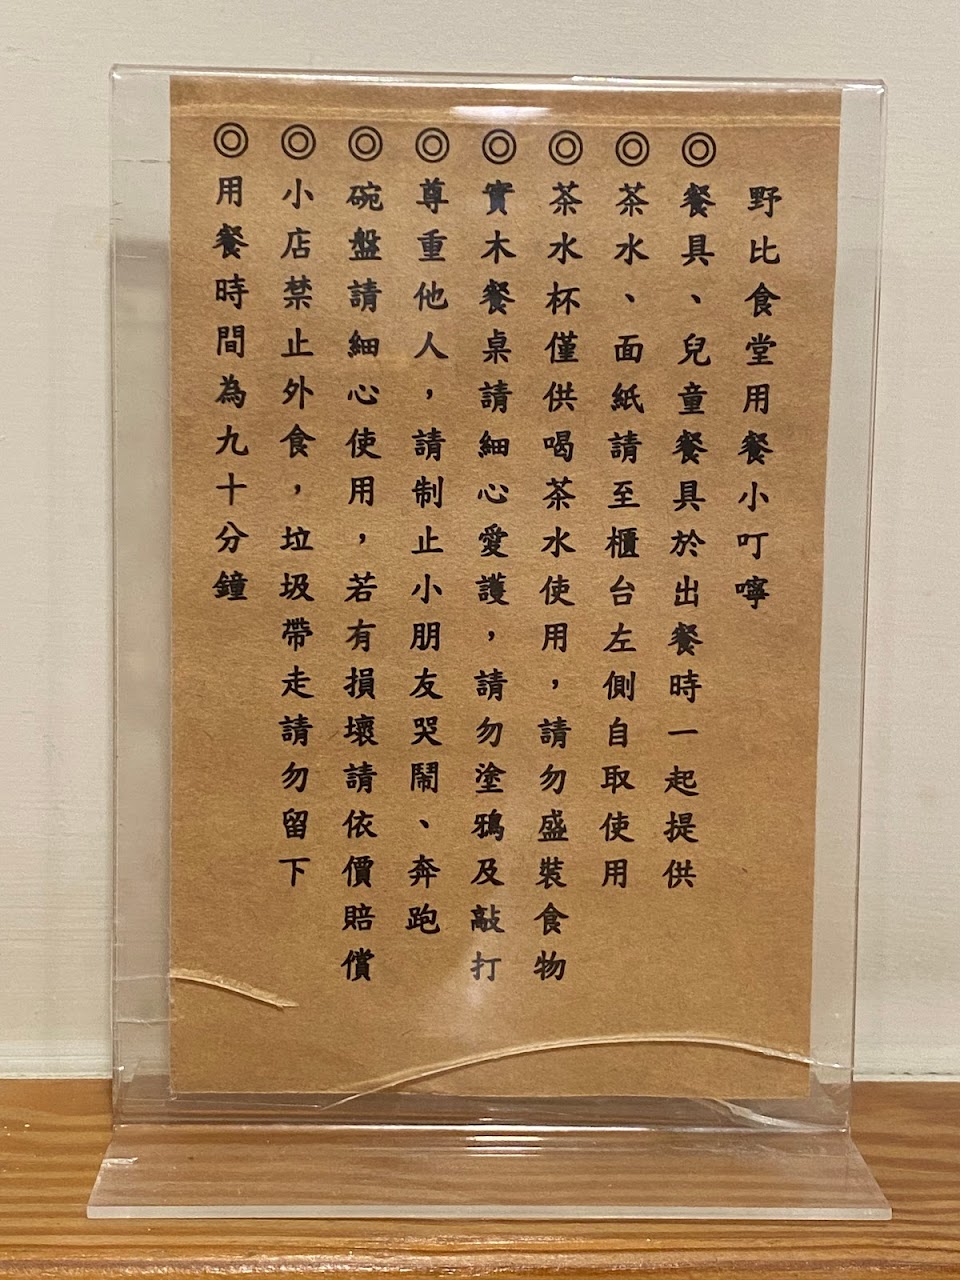 野比食堂用餐小叮嚀
◎餐具、兒童餐具於出餐時一起提供
◎茶水、面紙請至櫃台左側自取使用
◎茶水杯僅供喝茶水使用，請勿盛裝食物
◎實木餐桌請細心愛護，請勿塗鴉及敲打
◎尊重他人，請制止小朋友哭鬧、奔跑
◎碗盤請細心使用，若有損壞請依價賠償
◎小店禁止外食，垃圾帶走請勿留下
◎用餐時間為九十分鐘